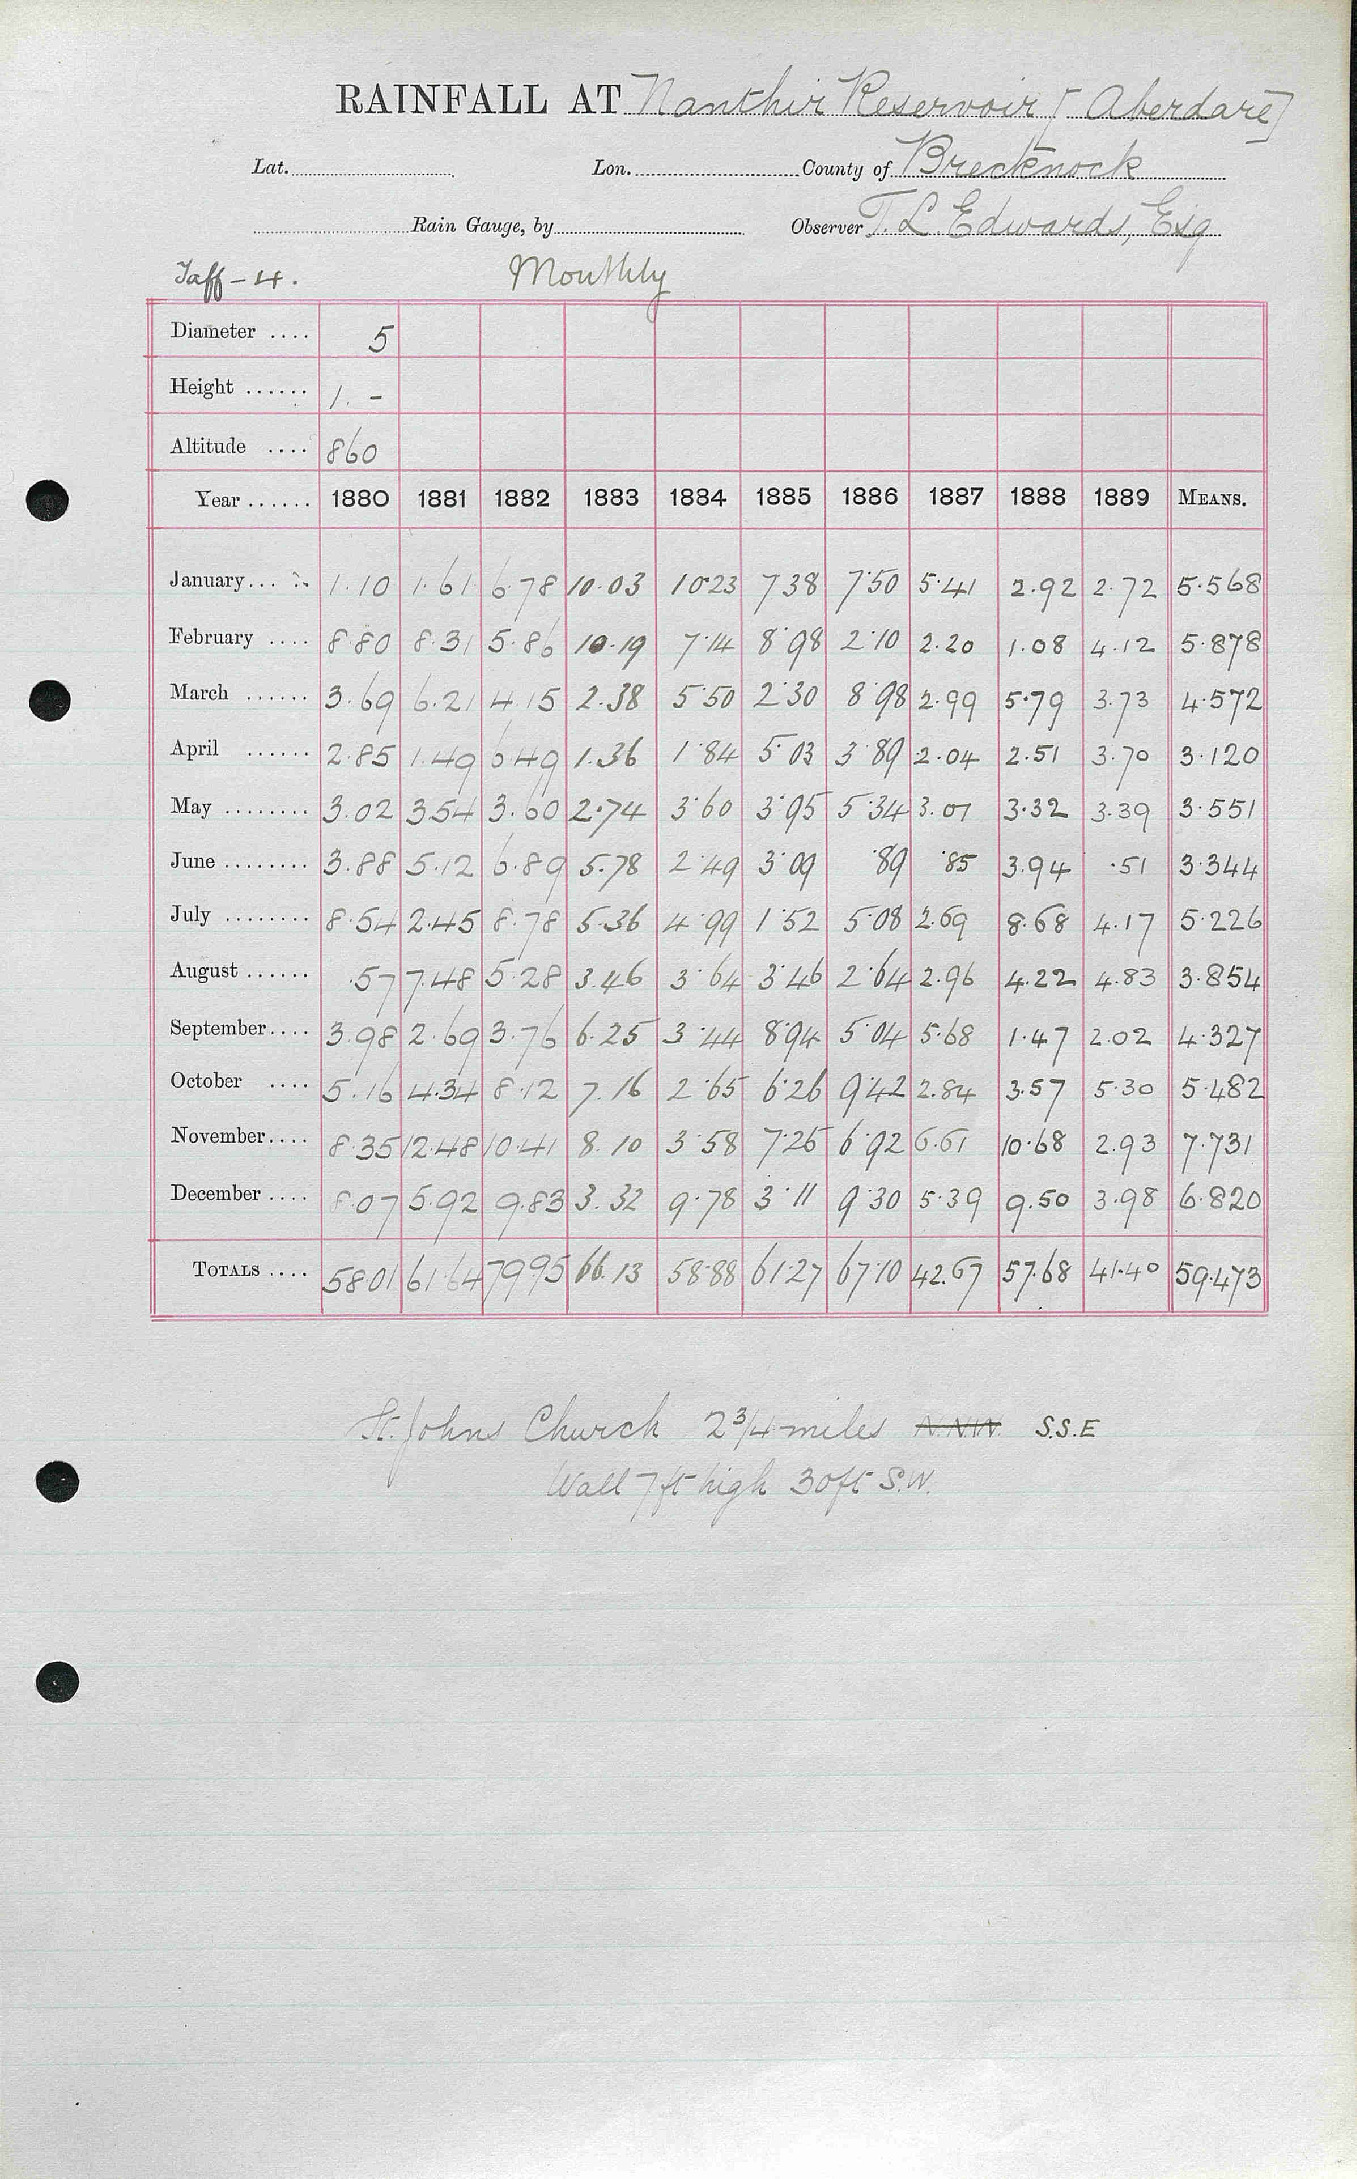 RAINFALL AT Nanthir Reservoir [Aberdare]
Lat. Lon. County of Brecknock
Rain Gauge, by Observer T. L. Edwards, Esq
Taff-4. Monthly
Diameter .... 5
Height ...... 1. -
Altitude .... 860
Year ...... 1880 1881 1882 1883 1884 1885 1886 1887 1888 1889 MEANS.
January... 1.10 1.61 6.78 10.03 10.23 7.38 7.50 5.41 2.92 2.72 5.568
February .... 8.80 8.31 5.86 10.19 7.14 8.98 2.10 2.20 1.08 4.12 5.878
March ...... 3.69 6.21 4.15 2.38 5.50 2.30 8.98 2.99 5.79 3.73 4.572
April ...... 2.85 1.49 6.49 1.36 1.84 5.03 3.89 2.04 2.51 3.70 3.120
May ........ 3.02 3.54 3.60 2.74 3.60 3.95 5.34 3.07 3.32 3.39 3.551
June ........ 3.88 5.12 6.89 5.78 2.49 3.09 .89 .85 3.94 .51 3.344
July ........ 8.54 2.45 8.78 5.36 4.99 1.52 5.08 2.69 8.68 4.17 5.226
August ...... .57 7.48 5.28 3.46 3.64 3.46 2.64 2.96 4.22 4.83 3.854
September.... 3.98 2.69 3.76 6.25 3.44 8.94 5.04 5.68 1.47 2.02 4.327
October .... 5.16 4.34 8.12 7.16 2.65 6.26 9.42 2.84 3.57 5.30 5.482
November.... 8.35 12.48 10.41 8.10 3.58 7.25 6.92 6.61 10.68 2.93 7.731
December .... 8.07 5.92 9.83 3.32 9.78 3.11 9.30 5.39 9.50 3.98 6.820
TOTALS .... 58.01 61.64 79.95 66.13 58.88 61.27 67.10 42.67 57.68 41.40 59.473
St. Johns Church 2 3/4 miles N.N.W. S.S.E
Wall 7 ft high 30ft S.W.